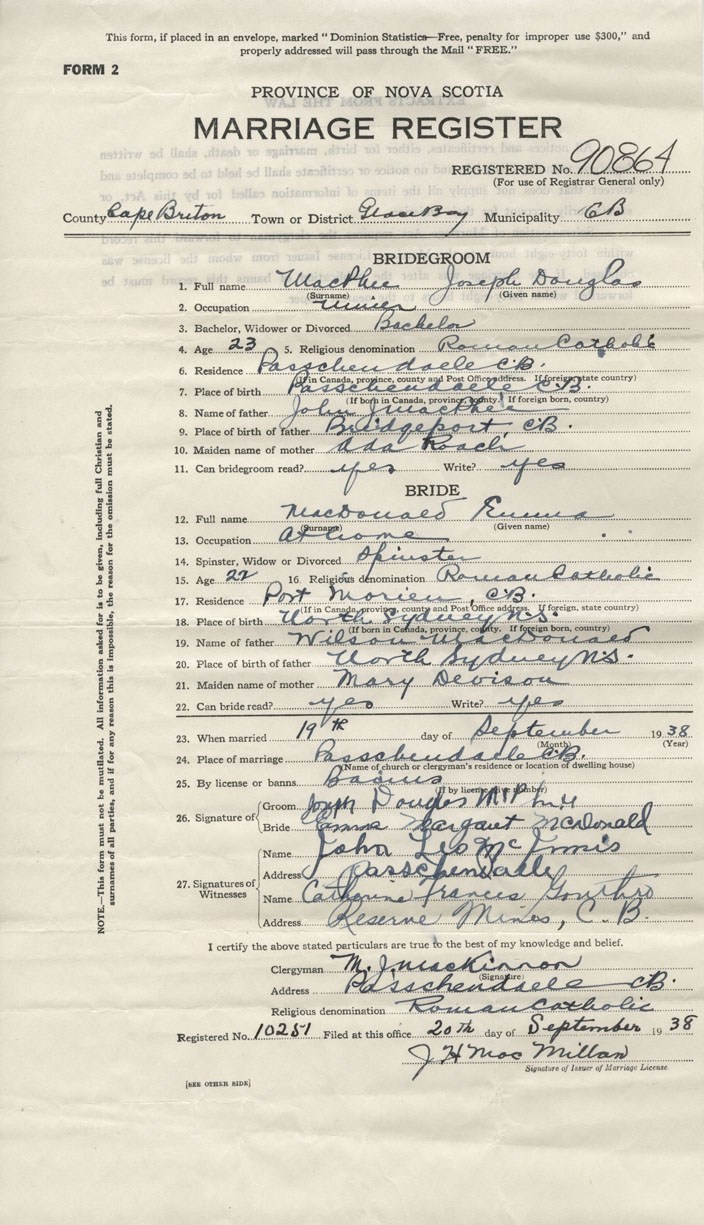 This form, if placed in an envelope, marked "Dominion Statistics—Free, penalty for improper use $300," and
properly addressed will pass through the Mail "FREE."
FORM 2
PROVINCE OF NOVA SCOTIA
MARRIAGE REGISTER
REGISTERED No. 90864
(For use of Registrar General only)
County Cape Breton Town or District Glace Bay Municipality CB
BRIDEGROOM
1. Full name MacPhee Joseph Douglas
(Surname) (Given name)
2. Occupation Miner
3. Bachelor, Widower or Divorced Bachelor
4. Age 23 5. Religious denomination Roman Catholic
6. Residence Passchendaele C.B.
(If in Canada, province, county and Post Office address. If foreign, state country)
7. Place of birth Passchendaele C.B.
(If born in Canada, province, county. If foreign born, country)
8. Name of father John J MacPhee
9. Place of birth of father Bridgeport, C.B.
10. Maiden name of mother Ada Roach
11. Can bridegroom read? yes Write? yes
BRIDE
12. Full name MacDonald Emma
(Surname) (Given name)
13. Occupation At home
14. Spinster, Widow or Divorced Spinster
15. Age 22 16. Religious denomination Roman Catholic
17. Residence Port Morien, C.B.
(If in Canada, province, county and Post Office address. If foreign, state country)
18. Place of birth North Sydney N.S.
(If born in Canada, province, county. If foreign born, country)
19. Name of father Wilson MacDonald
20. Place of birth of father North Sydney N.S.
21. Maiden name of mother Mary Devison
22. Can bride read? yes Write? yes
23. When married 19th day of September 1938
(Month) (Year)
24. Place of marriage Passchendaele C.B.
(Name of church or clergyman's residence or location of dwelling house)
25. By license or banns Banns
(If by license, give number)
26. Signature of Groom Joseph Douglas
Bride Emma Margaret McDonald
27. Signatures of Witnesses Name John Leo McInnis
Address Passchendaele
Name Catherine Frances Gouthro
Address Reserve Mines, C.B.
I certify the above stated particulars are true to the best of my knowledge and belief.
Clergyman M. J. MacKinnon
(Signature)
Address Passchendaele CB.
Religious denomination Roman Catholic
Registered No. 10251 Filed at this office 20th day of September 1938
J H MacMillan
Signature of Issuer of Marriage License
[SEE OTHER SIDE]
NOTE.—This form must not be mutilated. All information asked for is to be given, including full Christian and
surnames of all parties, and if for any reason this is impossible, the reason for the omission must be stated.